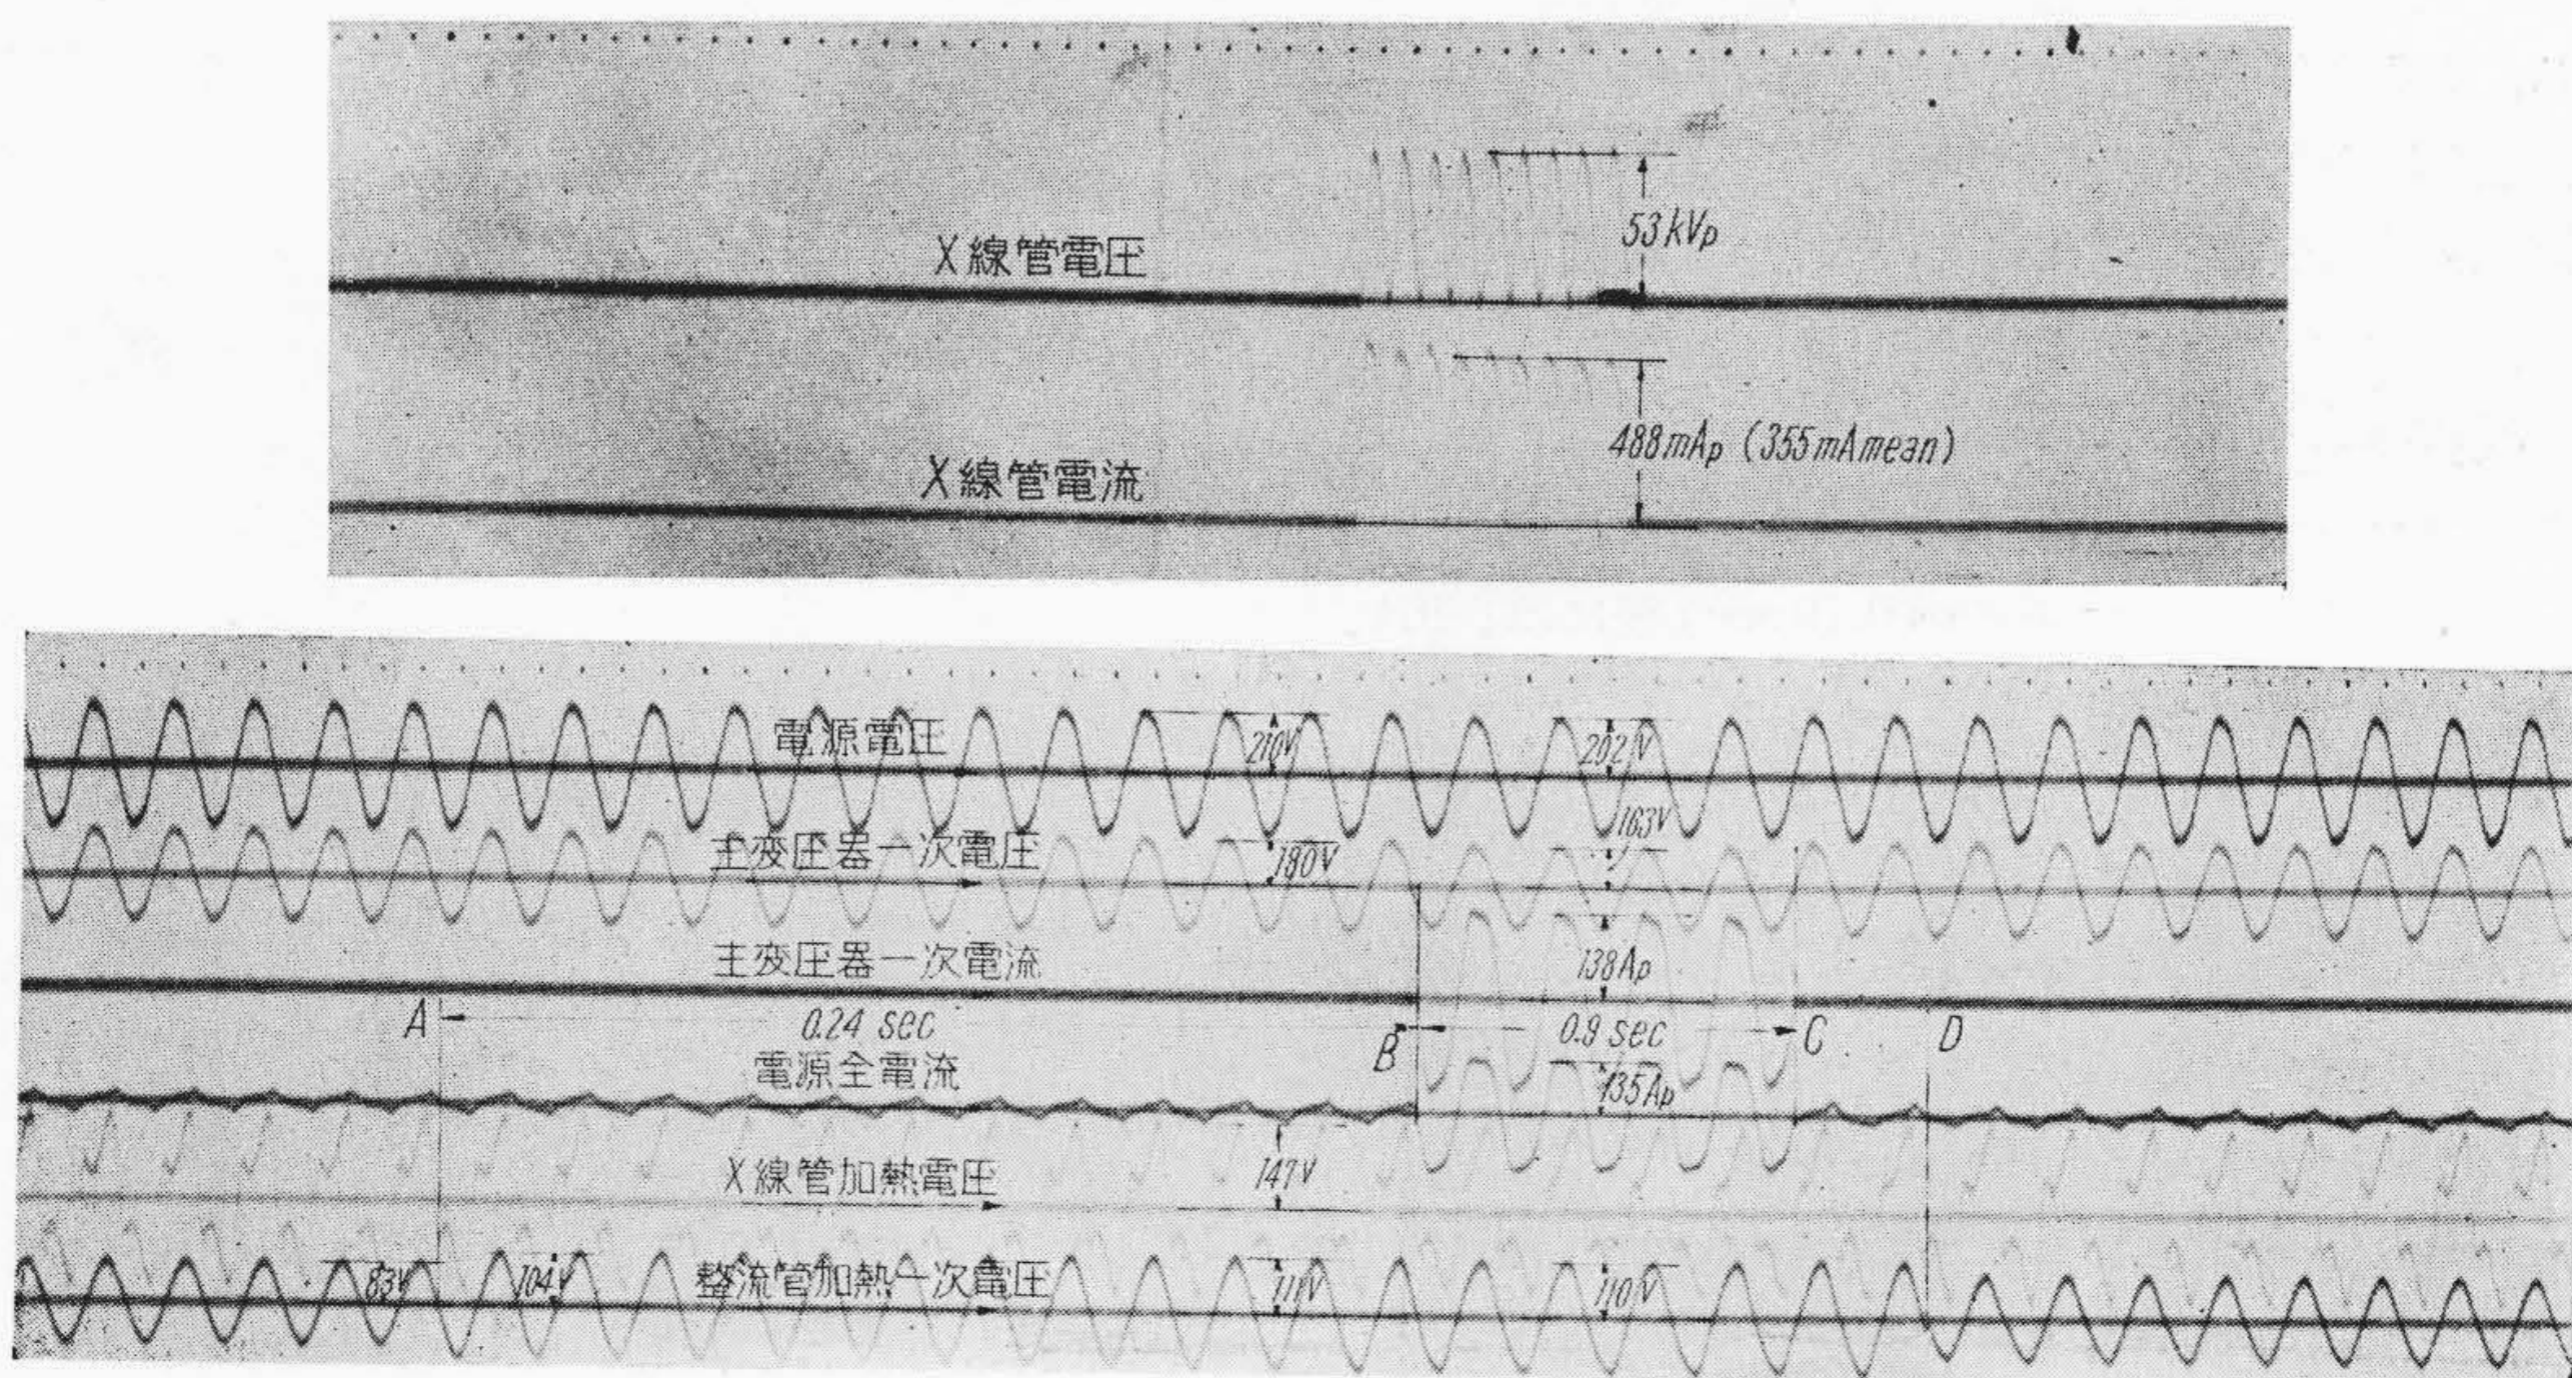 X線管電圧
53kVp
X線管電流
488mAp (355mAmean)
電源電圧
210V
202V
主変圧器一次電圧
180V
163V
主変圧器一次電流
138Ap
A
0.24 sec
B
0.9 sec
C
D
電源全電流
135Ap
X線管加熱電圧
147V
83V
104V
整流管加熱一次電圧
111V
110V